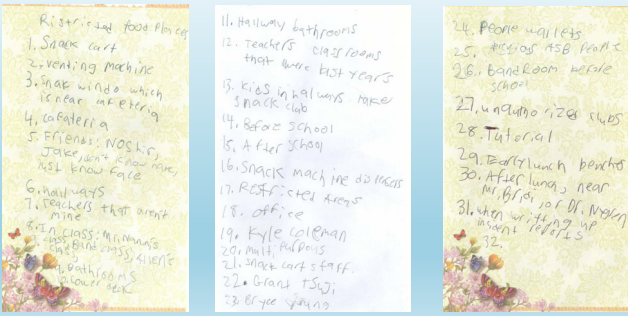 Ristricted food Places
1. Snack cart
2. venting machine
3. Snak windo which
is near
4. Cafateria
5. Friends: NOShir,
Jake, don't know name,
just know face
6. hallways
7. teachers that arent
mine
8. In class: Mr. Mann's
class, Band class,
class,
9. bathrooms
11. Hallway bathrooms
12. Teacher's classrooms
that were last year's
13. Kids in halways
snack club
14. Before School
15. After School
16. Snack machine
17. Restricted Areas
18. office
19. Kyle Coleman
20. Multi Purpous
21. Snack cart staff
22. Grant
23. Bryce young
24. People wallets
25. ASB People
26. BandRoom before
school
27. clubs
28. Tutorial
29. Early lunch benches
30. After lunch, near
Mr. or Dr.
31. when writing up
insident reports
32.